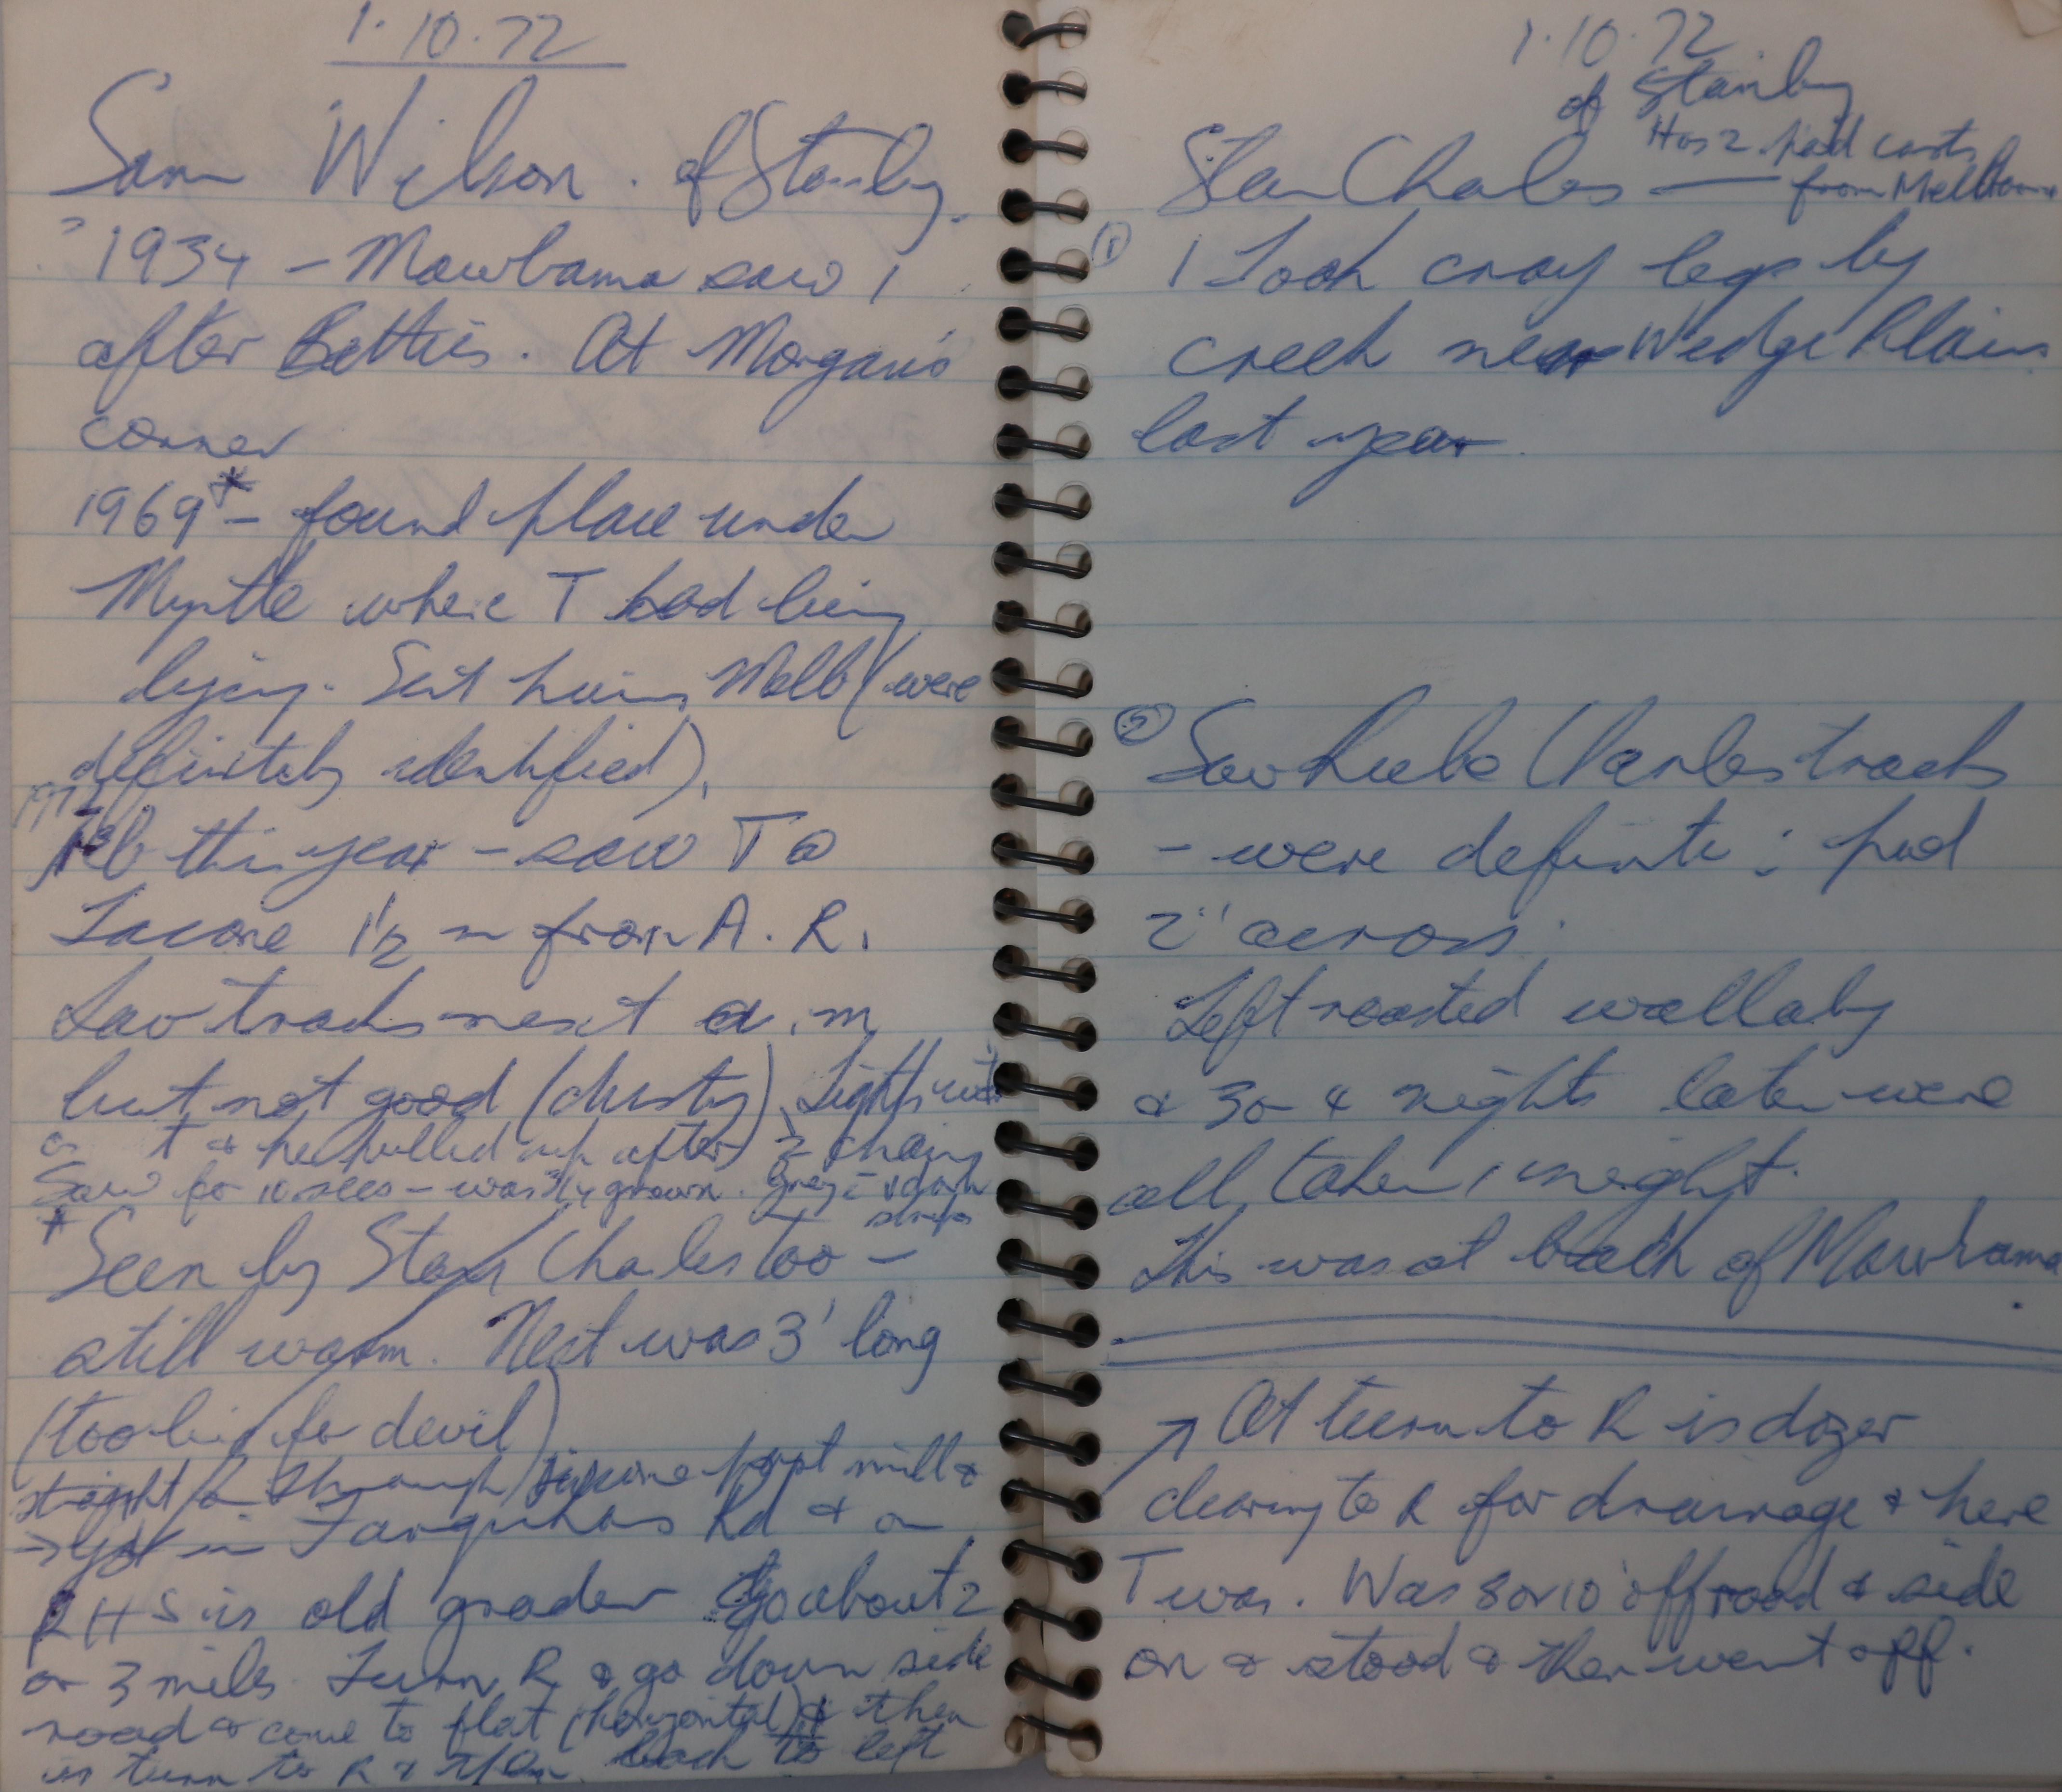 1.10.72
Sam Wilson. of Stanley.
1934 - Mawbama saw 1
after Betties. At Morgan's
corner
1969* - found place under
Myrtle where T had being
lying. Sent hairs Melb (were
definitely identified).
1972
Feb this year - saw T @
Lacone 1½ m from A. R.
Saw tracks next a.m
but not good (dusty). Lights went
on T & he pulled up after 2 chains
Saw for 10 secs - was ¾ grown. Grey & dark
stripes
* Seen by Stan Charles too -
still warm. Nest was 3' long
(too big for devil)
straight through past mill &
→ Farquhars Rd & on
RHS is old grader Go about 2
or 3 miles. Turn R & go down side
road & come to flat (horizontal) & then
is turn to R & then back to left
1.10.72
of Stanley
Has 2 pad casts
Stan Charles — from Melbourne
① 1 Took cray legs by
creek near Wedge Plains
last year
② Saw Charles tracks
- were definite; pad
2" across.
Left roasted wallaby
& 3 or 4 nights later were
all taken 1 night.
This was at back of Mawbama
↗ At turn to R is dozer
clearing to R for drainage & here
T was. Was 8 or 10' off road & side
on & stood & then went off.